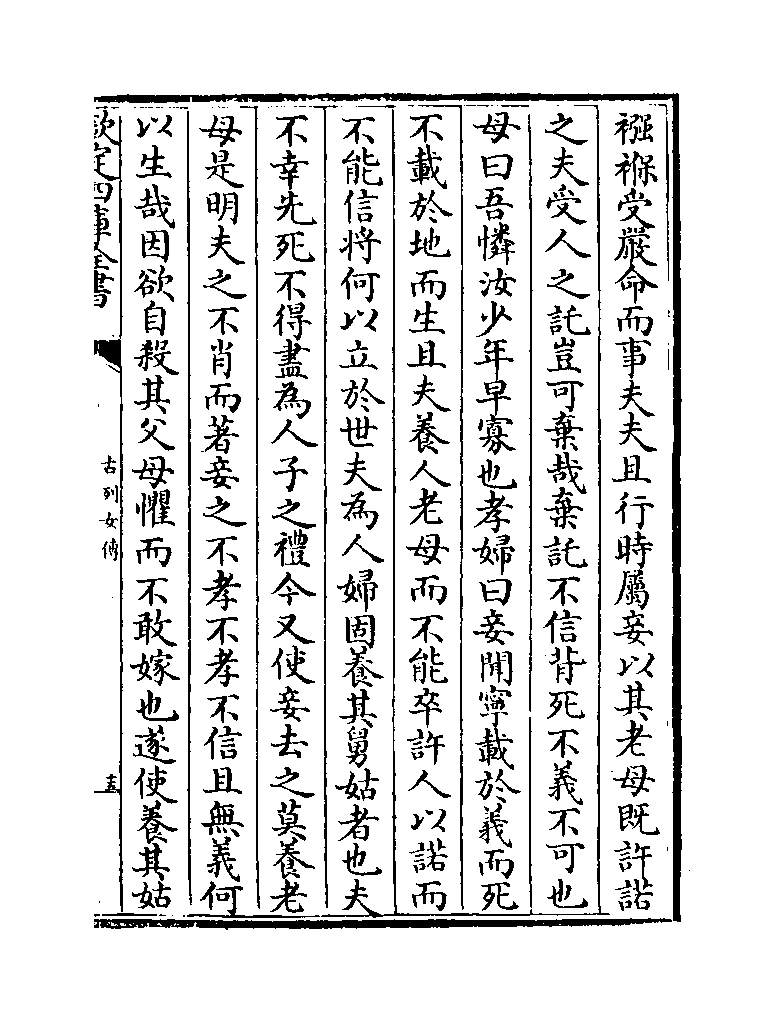 襁褓受嚴命而事夫夫且行時屬妾以其老母既許諾
之夫受人之託豈可棄哉棄託不信背死不義不可也
母曰吾憐汝少年早寡也孝婦曰妾聞寧載於義而死
不載於地而生且夫養人老母而不能卒許人以諾而
不能信將何以立於世夫為人婦固養其舅姑者也夫
不幸先死不得盡為人子之禮今又使妾去之莫養老
母是明夫之不肖而著妾之不孝不孝不信且無義何
以生哉因欲自殺其父母懼而不敢嫁也遂使養其姑
欽定四庫全書
古列女傳
十五